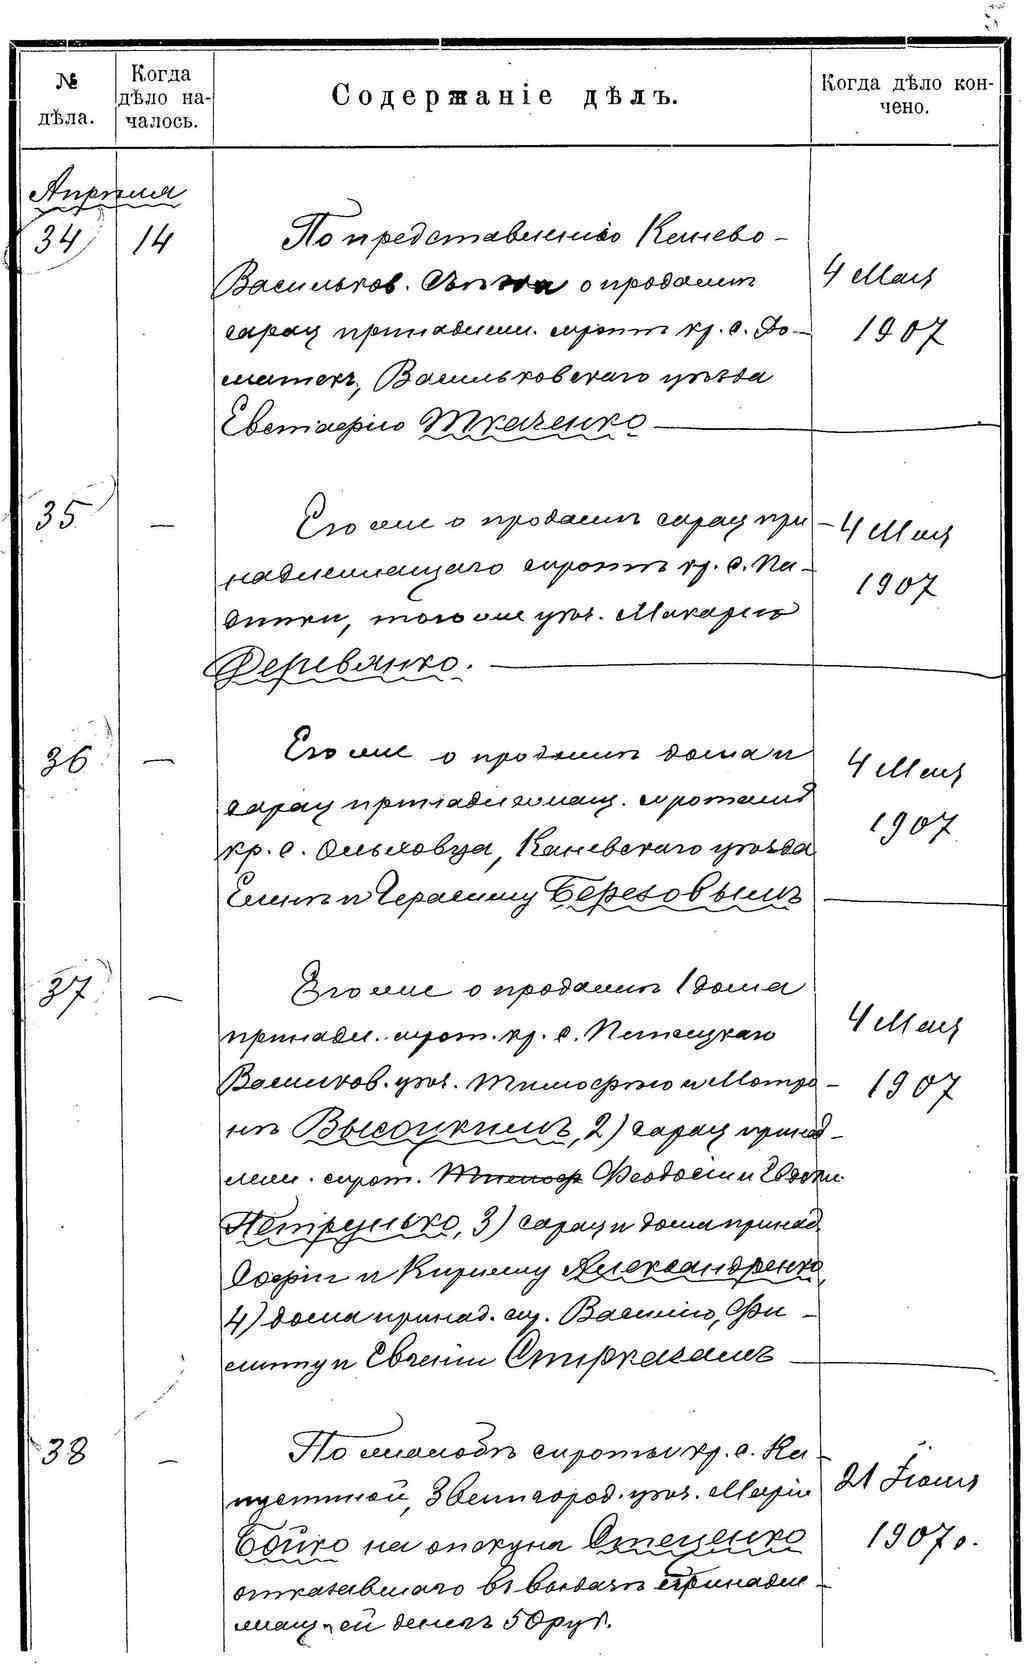 № дѣла.
Когда дѣло началось.
Содержаніе дѣлъ.
Когда дѣло кончено.
Апрѣля
34
14
По представленію Канево-
Васильков. Съѣзда о продажѣ
сарая принадлеж. сиротѣ кр. с. До-
матокъ, Васильковскаго уѣзда
Евстафію Ткаченко
4 Мая
1907
35
—
Его же о продажѣ сарая при-
надлежащаго сиротѣ кр. с. Па-
дитки, того же уѣз. Макарію
Деревянко.
4 Мая
1907
36
—
Его же о продажѣ дома и
сарая принадлежащ. сиротамъ
кр. с. Ольховца, Каневскаго уѣзда
Еленѣ и Герасиму Березовымъ
4 Мая
1907
37
—
Его же о продажѣ 1 дома
принадл. сирот. кр. с.
Васильков. уѣз. Тимофѣю и Матро-
нѣ Высоцкимъ, 2) сарая принад-
леж. сирот. Тимоф Феодосіи и
Петрунько, 3) сарая и дома принад.
Софіи и Кириллу Александренко,
4) дома принад. Василію, Фи-
липпу и Евгеніи Стирказамъ
4 Мая
1907
38
—
По жалобѣ сироты кр. с. Ка-
пустиной, Звенигород. уѣз. Маріи
Бойко на опекуна Стеценко
отказавшаго въ выдачѣ принадле-
жащей денегъ 50 руб.
21 Іюня
1907 г.